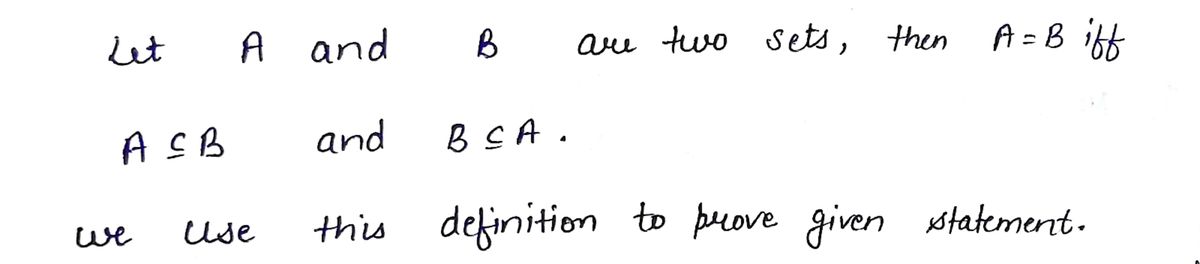 Let A and B are two sets, then A = B iff
A ⊆ B and B ⊆ A .
we use this definition to prove given statement.